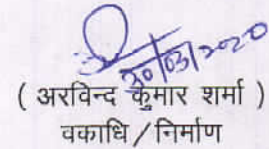 30/03/2020
( अरविन्द कुमार शर्मा )
वकाधि / निर्माण